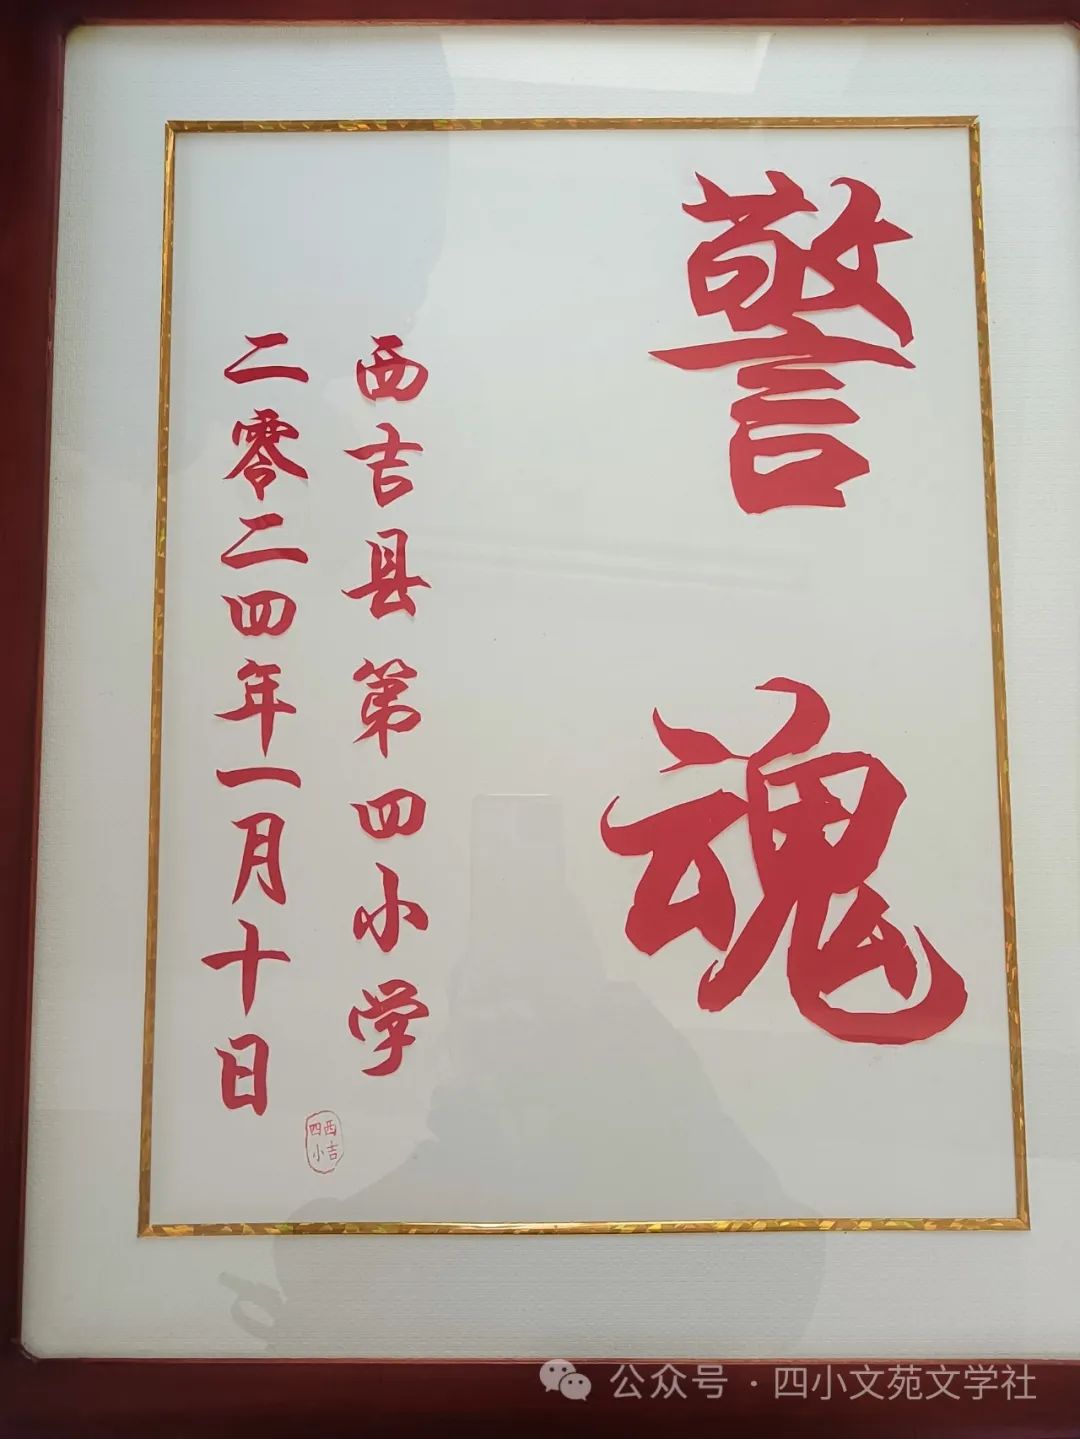 警魂
西吉县第四小学
二零二四年一月十日
西吉
四小
公众号·四小文苑文学社